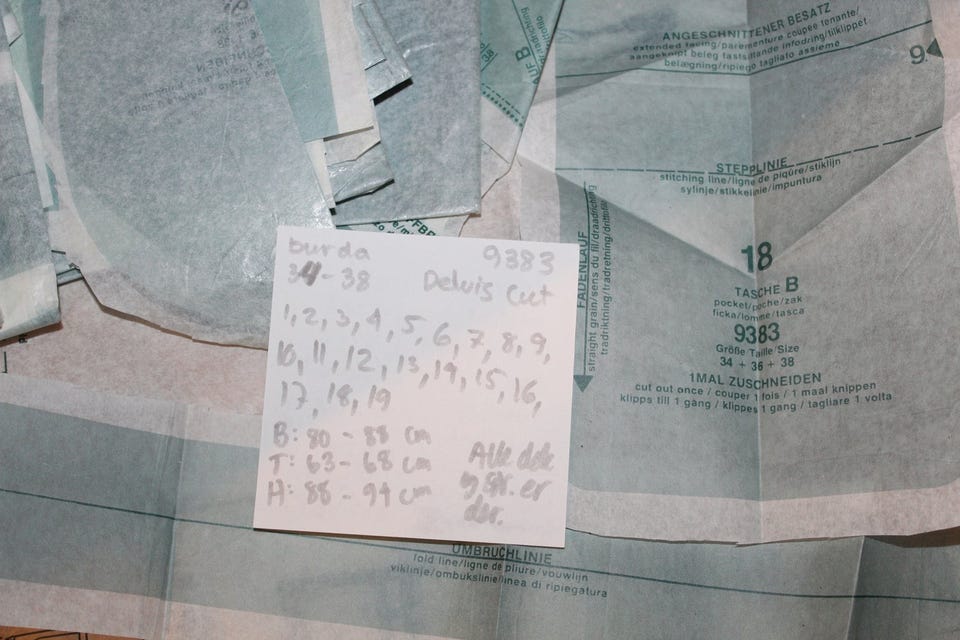 ANGESCHNITTENER BESATZ
extended facing/parementure coupée tenante/
aangeknipt beleg fastsittande infodring/tilklippet
belægning/ripiego tagliato assieme
9.
STEPPLINIE
stitching line/ligne de piqûre/stiklijn
sylinje/stikkelinie/impuntura
FADENLAUF
straight grain/sens du fil/draadrichting
trådriktning/trådretning/drittofilo
18
TASCHE B
pocket/poche/zak
ficka/lomme/tasca
9383
Größe Taille Size
34 + 36 + 38
1MAL ZUSCHNEIDEN
cut out once / couper 1 fois / 1 maal knippen
klipps till 1 gång / klippes 1 gang / tagliare 1 volta
burda 9383
34-38 Delvis Cut
1, 2, 3, 4, 5, 6, 7, 8, 9,
10, 11, 12, 13, 14, 15, 16,
17, 18, 19
B: 80 - 88 cm
T: 63 - 68 cm
H: 88 - 94 cm
Alle dele
og str. er
der.
UMBRUCHLINIE
fold line/ligne de pliure/vouwlijn
viklinje/ombukslinie/linea di ripiegatura